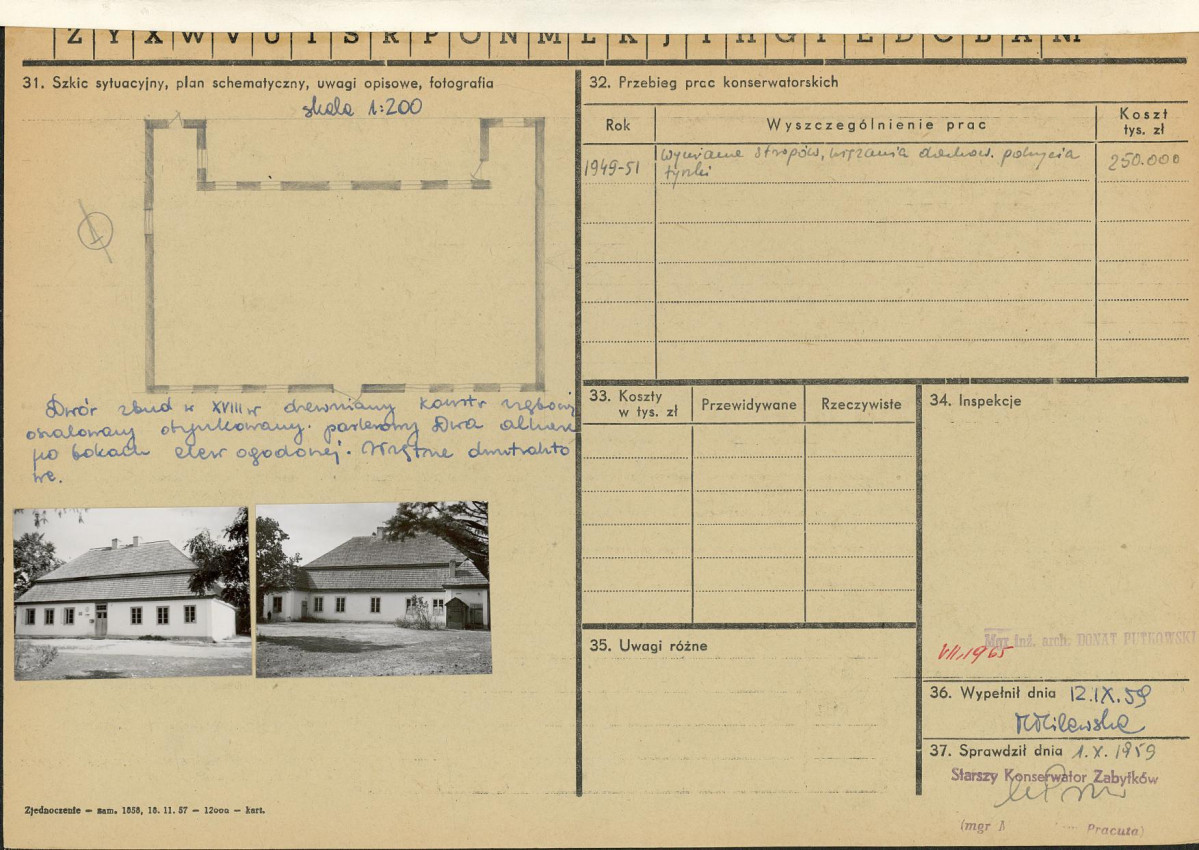 Z Y X W V U T S R P O N M L K J I H G F E D C B A Nr
31. Szkic sytuacyjny, plan schematyczny, uwagi opisowe, fotografia
skala 1:200
Dwór zbud w XVIII w drewniany konstr zrębowej
oszalowany otynkowany. parterowy Dwa alkierze
po bokach elew ogodonej. Wnętrze dwutrakto
we.
Zjednoczenie — zam. 1858, 18. 11. 57 — 12000 — kart.
32. Przebieg prac konserwatorskich
Rok
Wyszczególnienie prac
Koszt
tys. zł
1949-51
wymiana stropów, wiązania dachow. pokrycia
tynki
250.000
33. Koszty
w tys. zł
Przewidywane
Rzeczywiste
34. Inspekcje
Mgr inż. arch. DONAT PUTKOWSKI
VII.1965
35. Uwagi różne
36. Wypełnił dnia 12.IX.59
MMilewska
37. Sprawdził dnia 1.X.1959
Starszy Konserwator Zabytków
(mgr Pracuta)